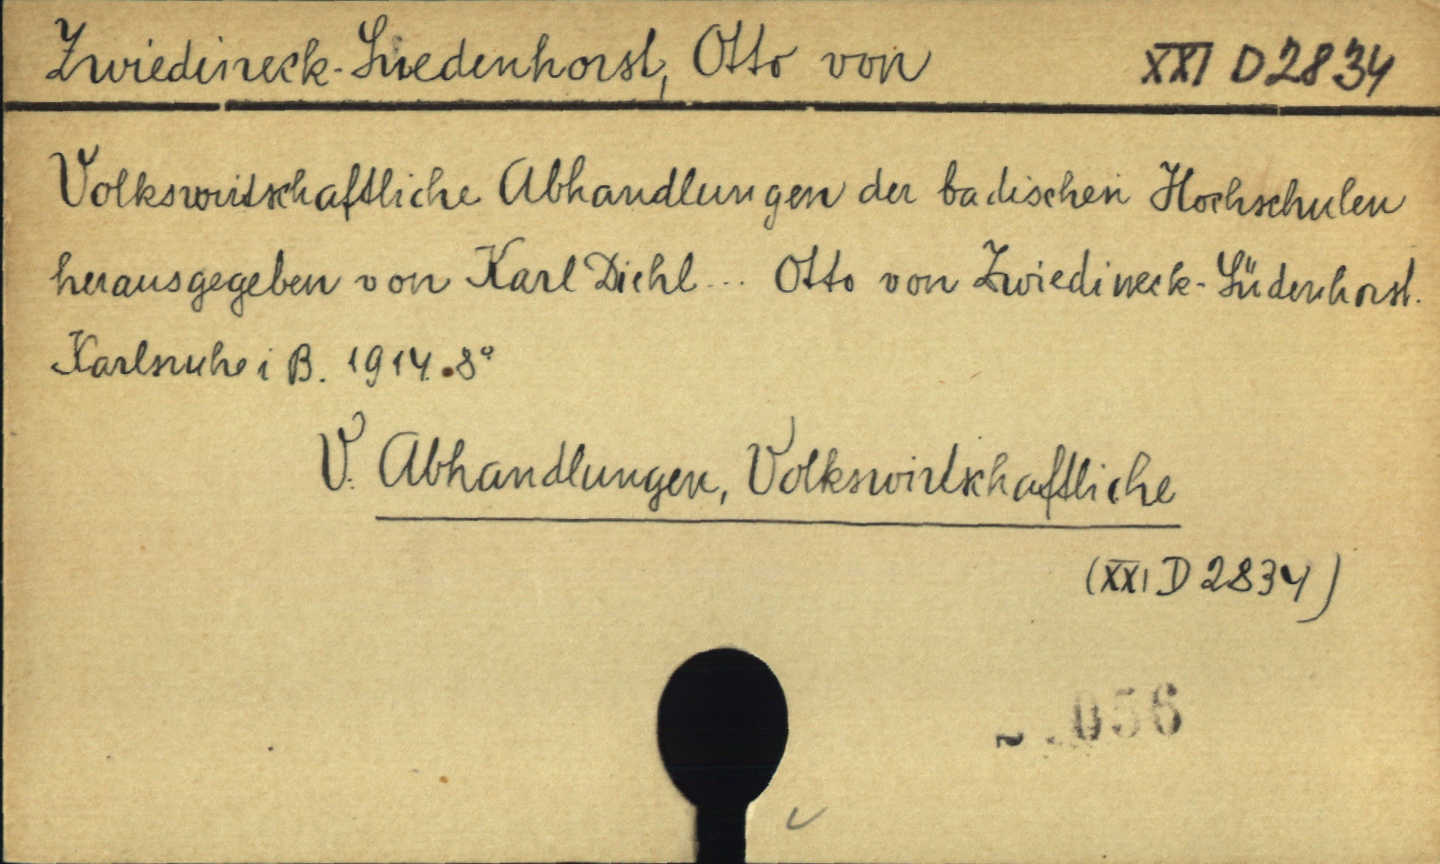 Zwiedineck-Suedenhorst, Otto von XXI D 2834
Volkswirtschaftliche Abhandlungen der badischen Hochschulen
herausgegeben von Karl Diehl... Otto von Zwiedineck-Südenhorst.
Karlsruhe i B. 1914. 8°
V. Abhandlungen, Volkswirtschaftliche
(XXI D 2834)
056